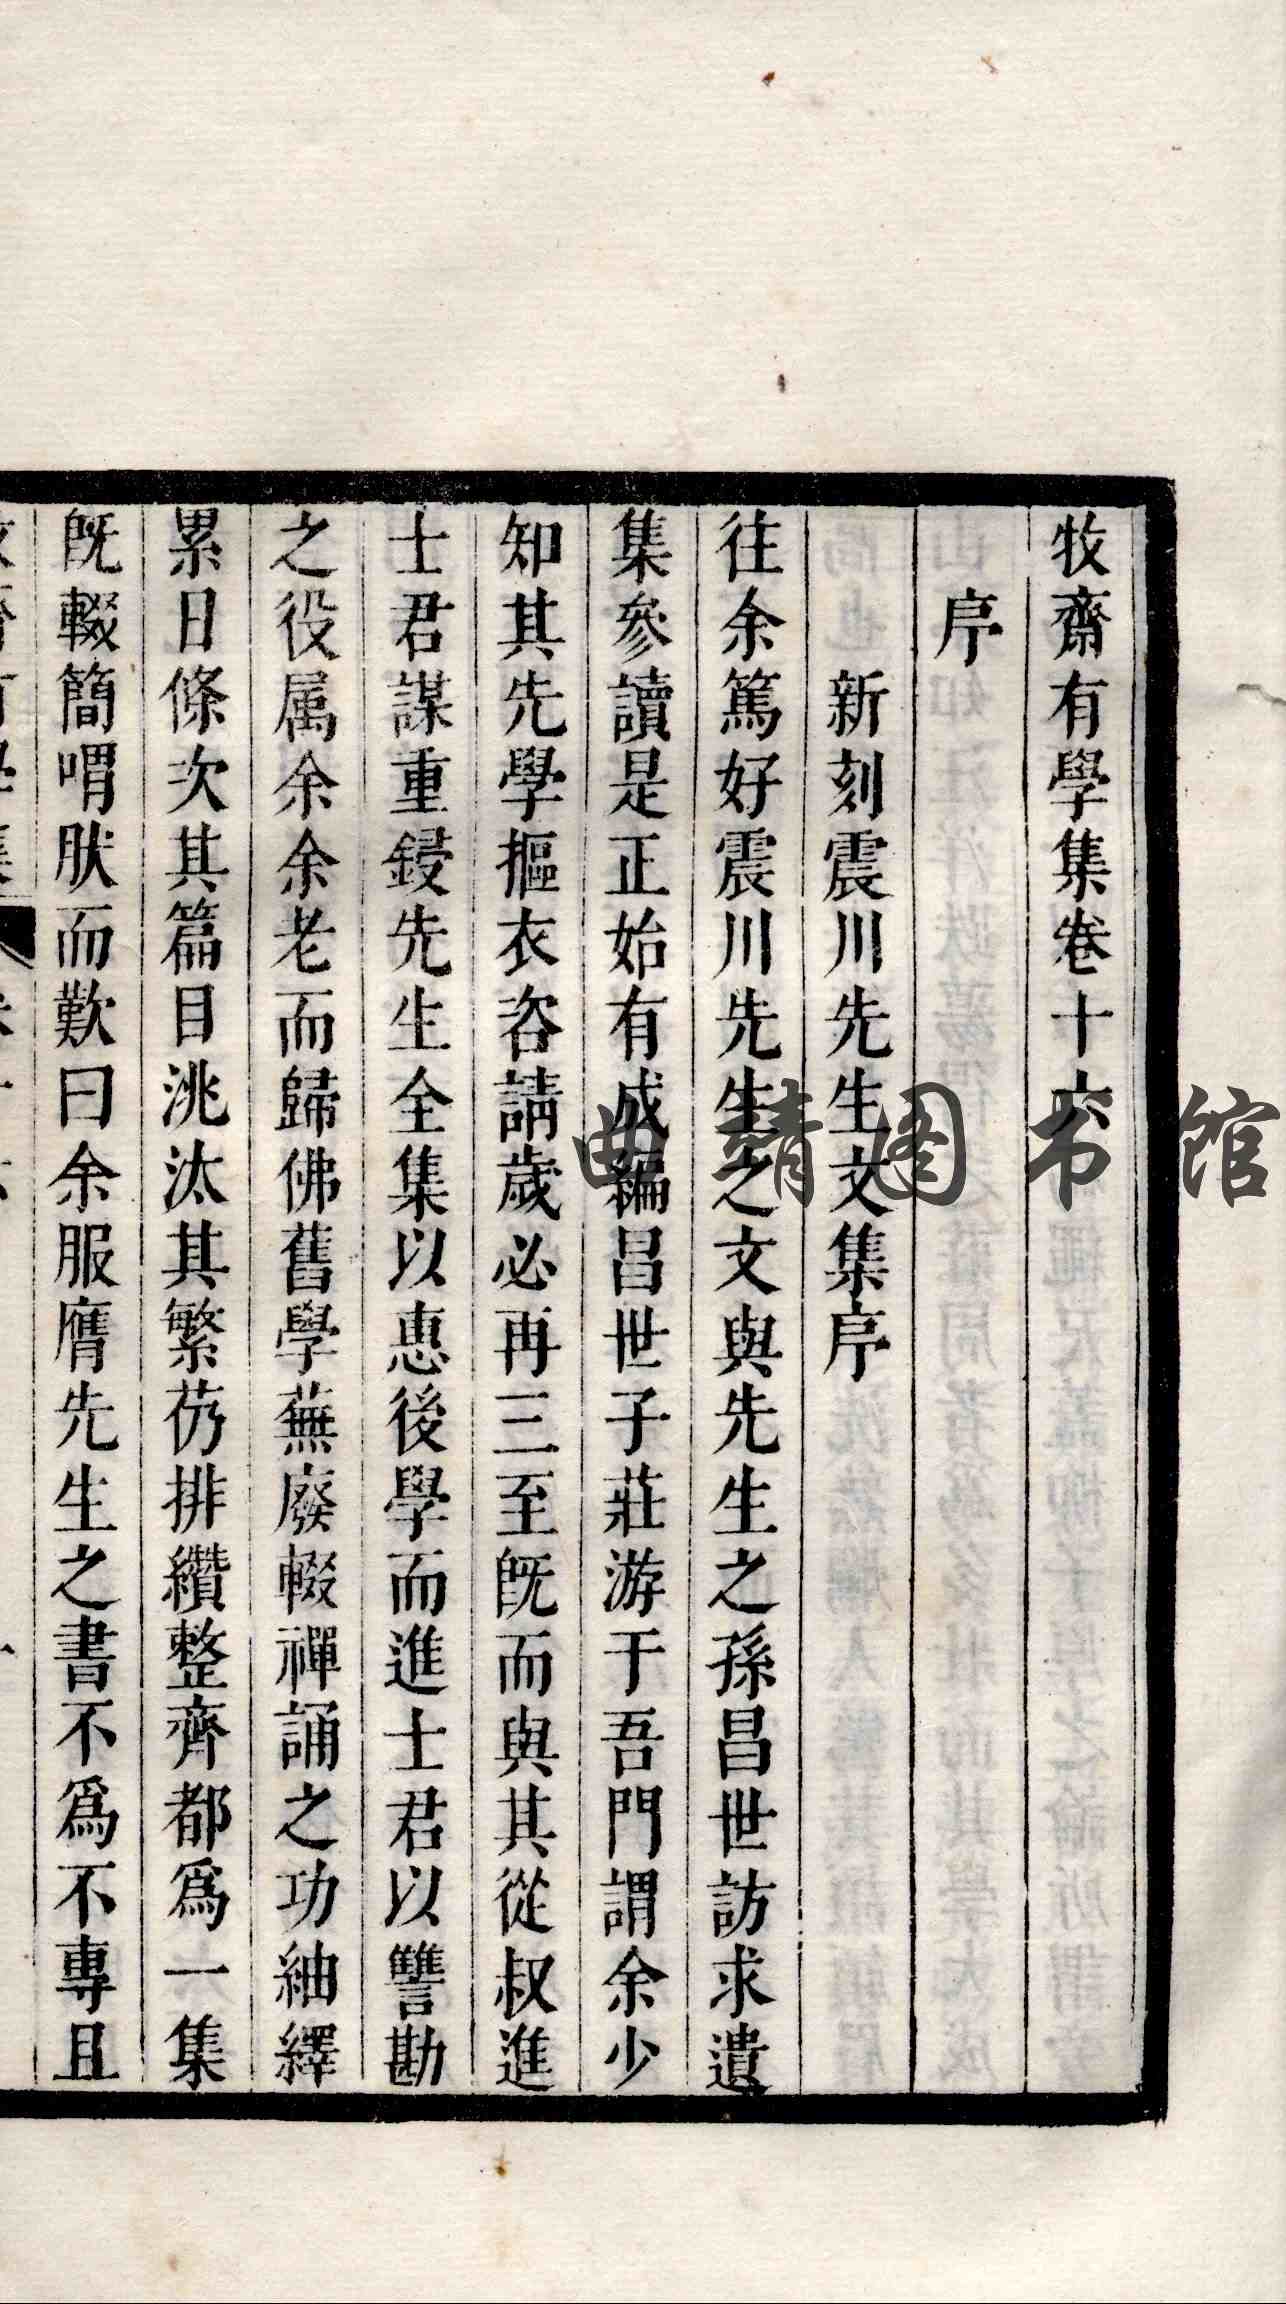 牧齋有學集卷十六
序
新刻震川先生文集序
往余篤好震川先生之文與先生之孫昌世訪求遺
集參讀是正始有成編昌世子莊游于吾門謂余少
知其先學摳衣咨請歲必再三至旣而與其從叔進
士君謀重鋟先生全集以惠後學而進士君以讐勘
之役属余余老而歸佛舊學蕪廢輟禪誦之功紬繹
累日條次其篇目洮汰其繁芿排纘整齊都爲一集
旣輟簡喟肰而歎曰余服膺先生之書不爲不專且
曲靖图书馆